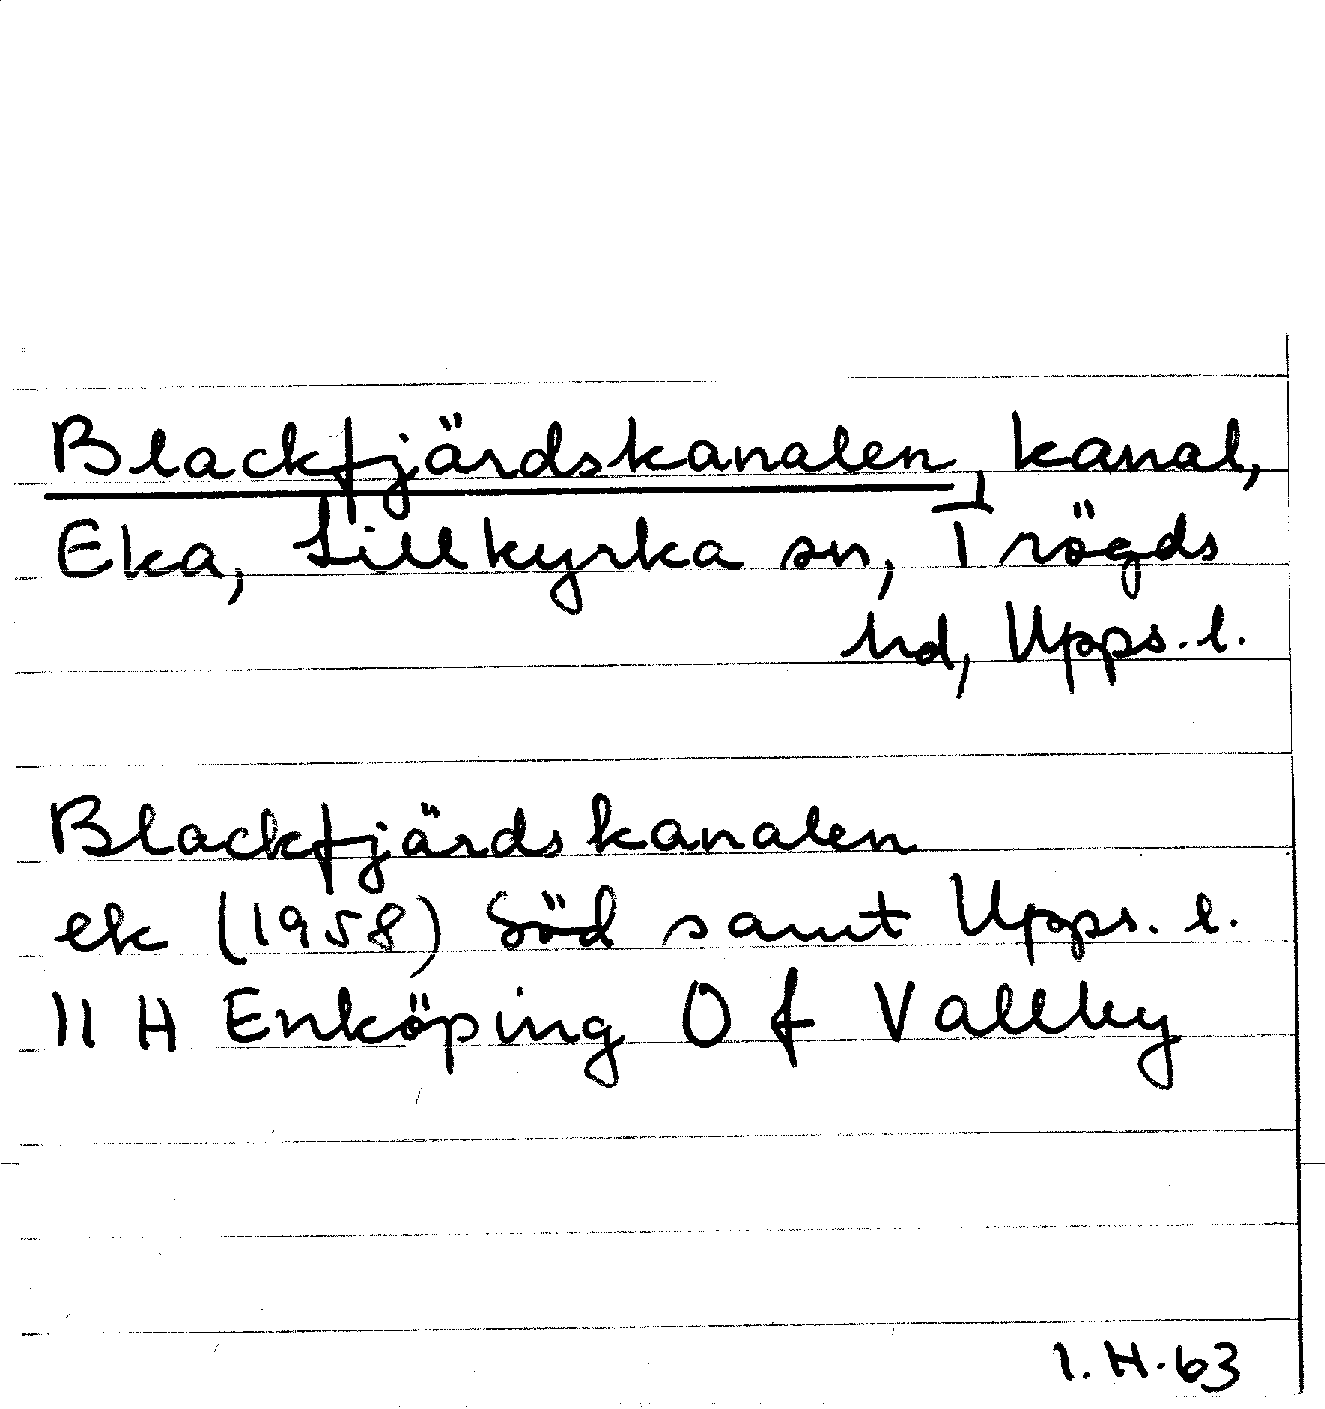 Blackfjärdskanalen, kanal,
Eka, Lillkyrka sn, Trögds
hd, Upps. l.
Blackfjärdskanalen
ek (1958) Söd samt Upps. l.
11 H Enköping 0 f Vallby
I. H. 63